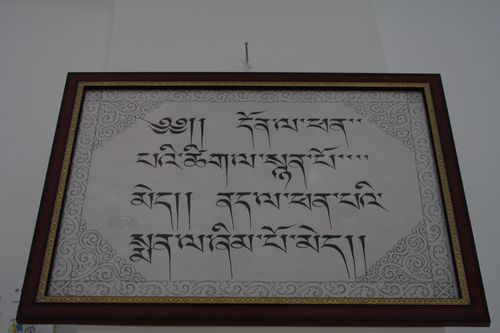 ༄༅།། དོན་ལ་ཕན་་
པའི་ཚིག་ལ་སྙན་པོ་་་་
མེད།། ནད་ལ་ཕན་པའི་
སྨན་ལ་ཞིམ་པོ་མེད།།